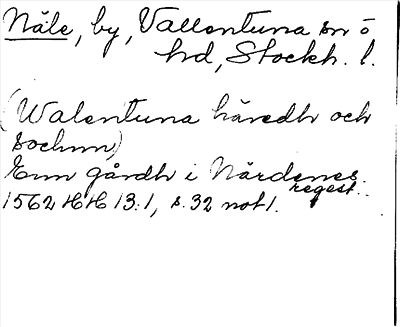 Näle, by, Vallentuna sn o
hd, Stockh. l.
(Walentuna häredh och
sochnn)
Enn gårdh i Närdenes.
regest.
1562 HH 13:1, s. 32 not 1.